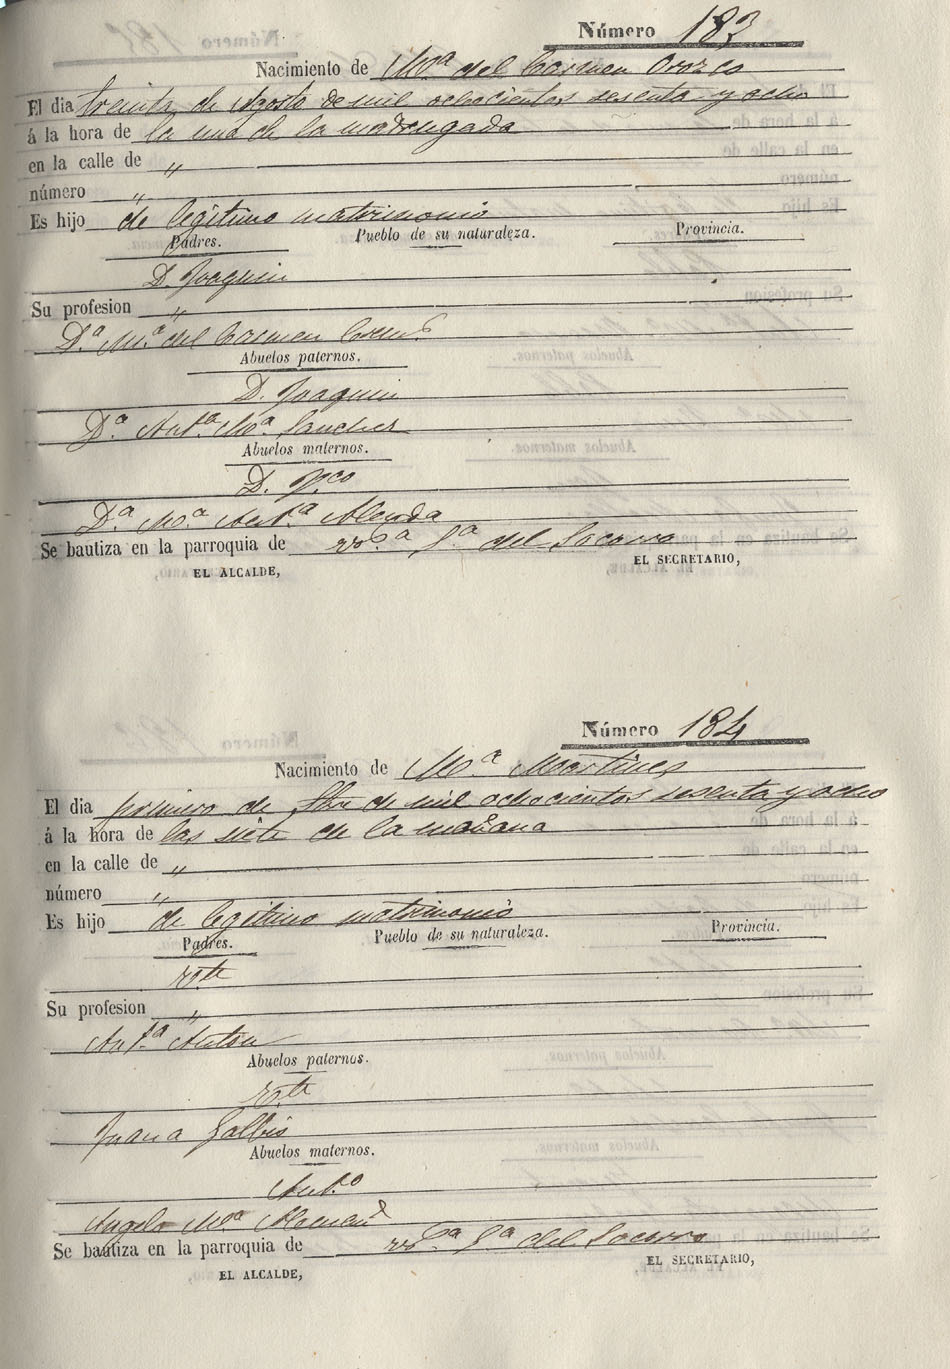 Número 183
Nacimiento de Mª del Carmen Orozco
El dia treinta de Agosto de mil ochocientos sesenta y ocho
á la hora de la una de la madrugada
en la calle de "
número "
Es hijo de legitimo matrimonio
Padres. Pueblo de su naturaleza. Provincia.
D. Joaquin
Su profesion "
Dª Mª del Carmen
Abuelos paternos.
D. Joaquin
Dª Antª Mª Sanchez
Abuelos maternos.
D. Fco
Dª Mª Antª Alenda
Se bautiza en la parroquia de Nª Sª del Socorro
EL ALCALDE, EL SECRETARIO,
Número 184
Nacimiento de Mª Martinez
El dia primero de 7bre de mil ochocientos sesenta y ocho
á la hora de las siete de la mañana
en la calle de "
número "
Es hijo de legitimo matrimonio
Padres. Pueblo de su naturaleza. Provincia.
Vte
Su profesion "
Antª Anton
Abuelos paternos.
Vte
Juana Galbis
Abuelos maternos.
Antº
Angela Mª Alemañ
Se bautiza en la parroquia de Nª Sª del Socorro
EL ALCALDE, EL SECRETARIO,